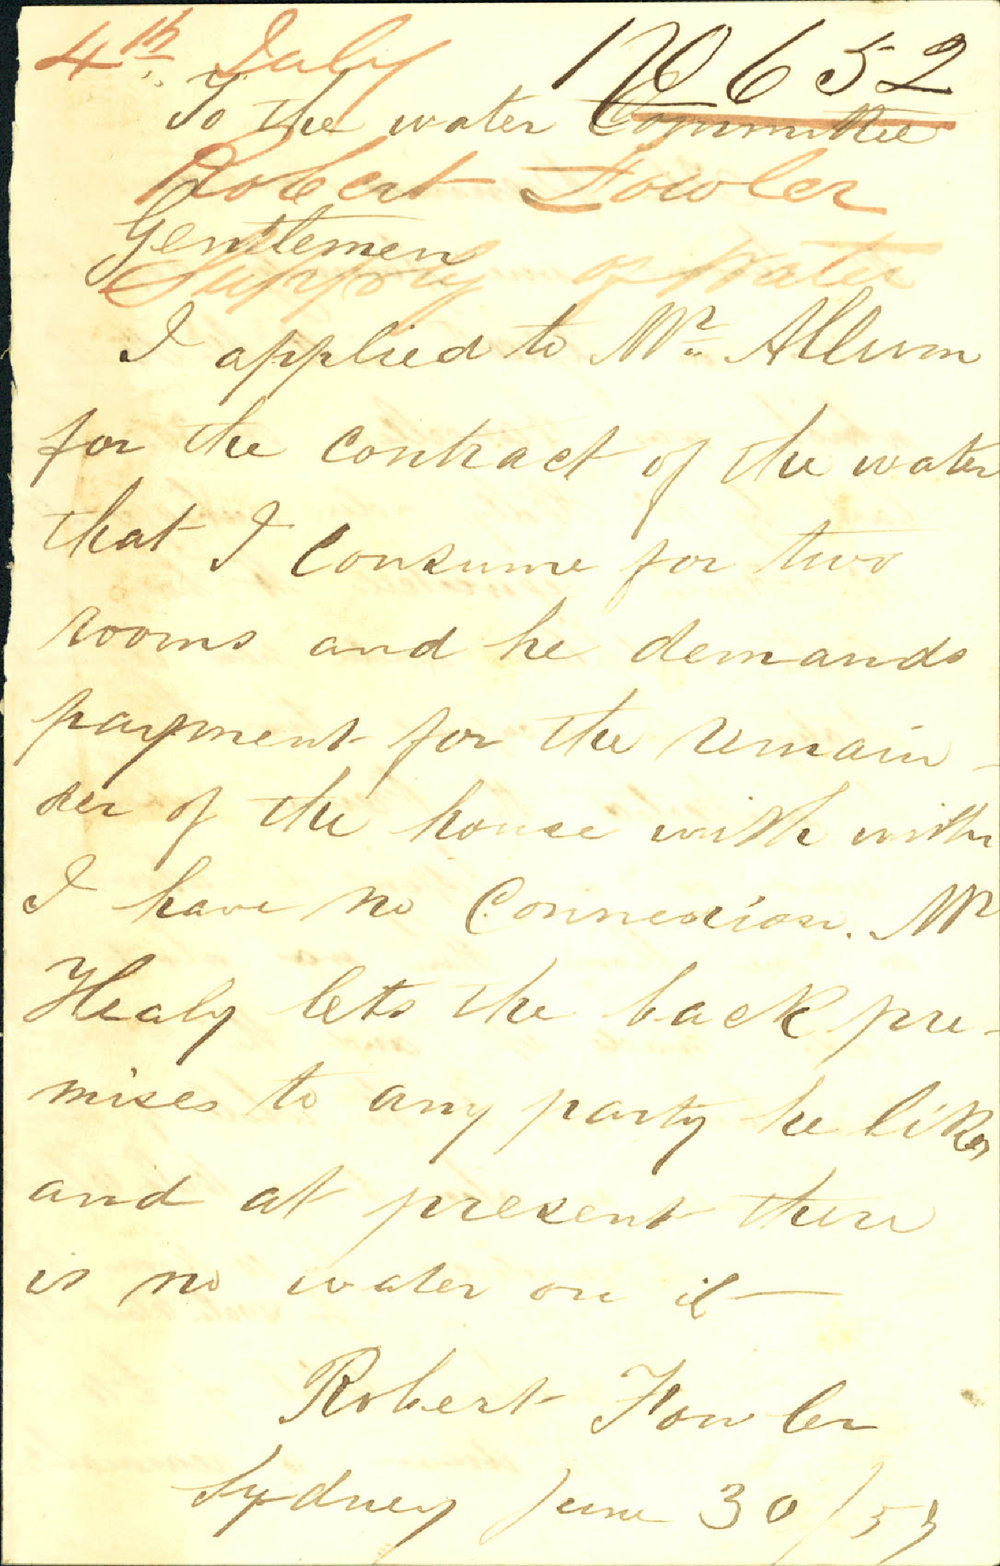 4th July
No 652
To the water Committee
Robert Fowler
Gentlemen
Supply of Water
I applied to Mr
for the contract of the water
that I consume for two
rooms and he demands
payment for the remain-
der of the house with
I have no Connexion. Mr
Healy lets the back pre-
mises to any party he likes
and at present there
is no water on it—
Robert Fowler
Sydney June 30/53